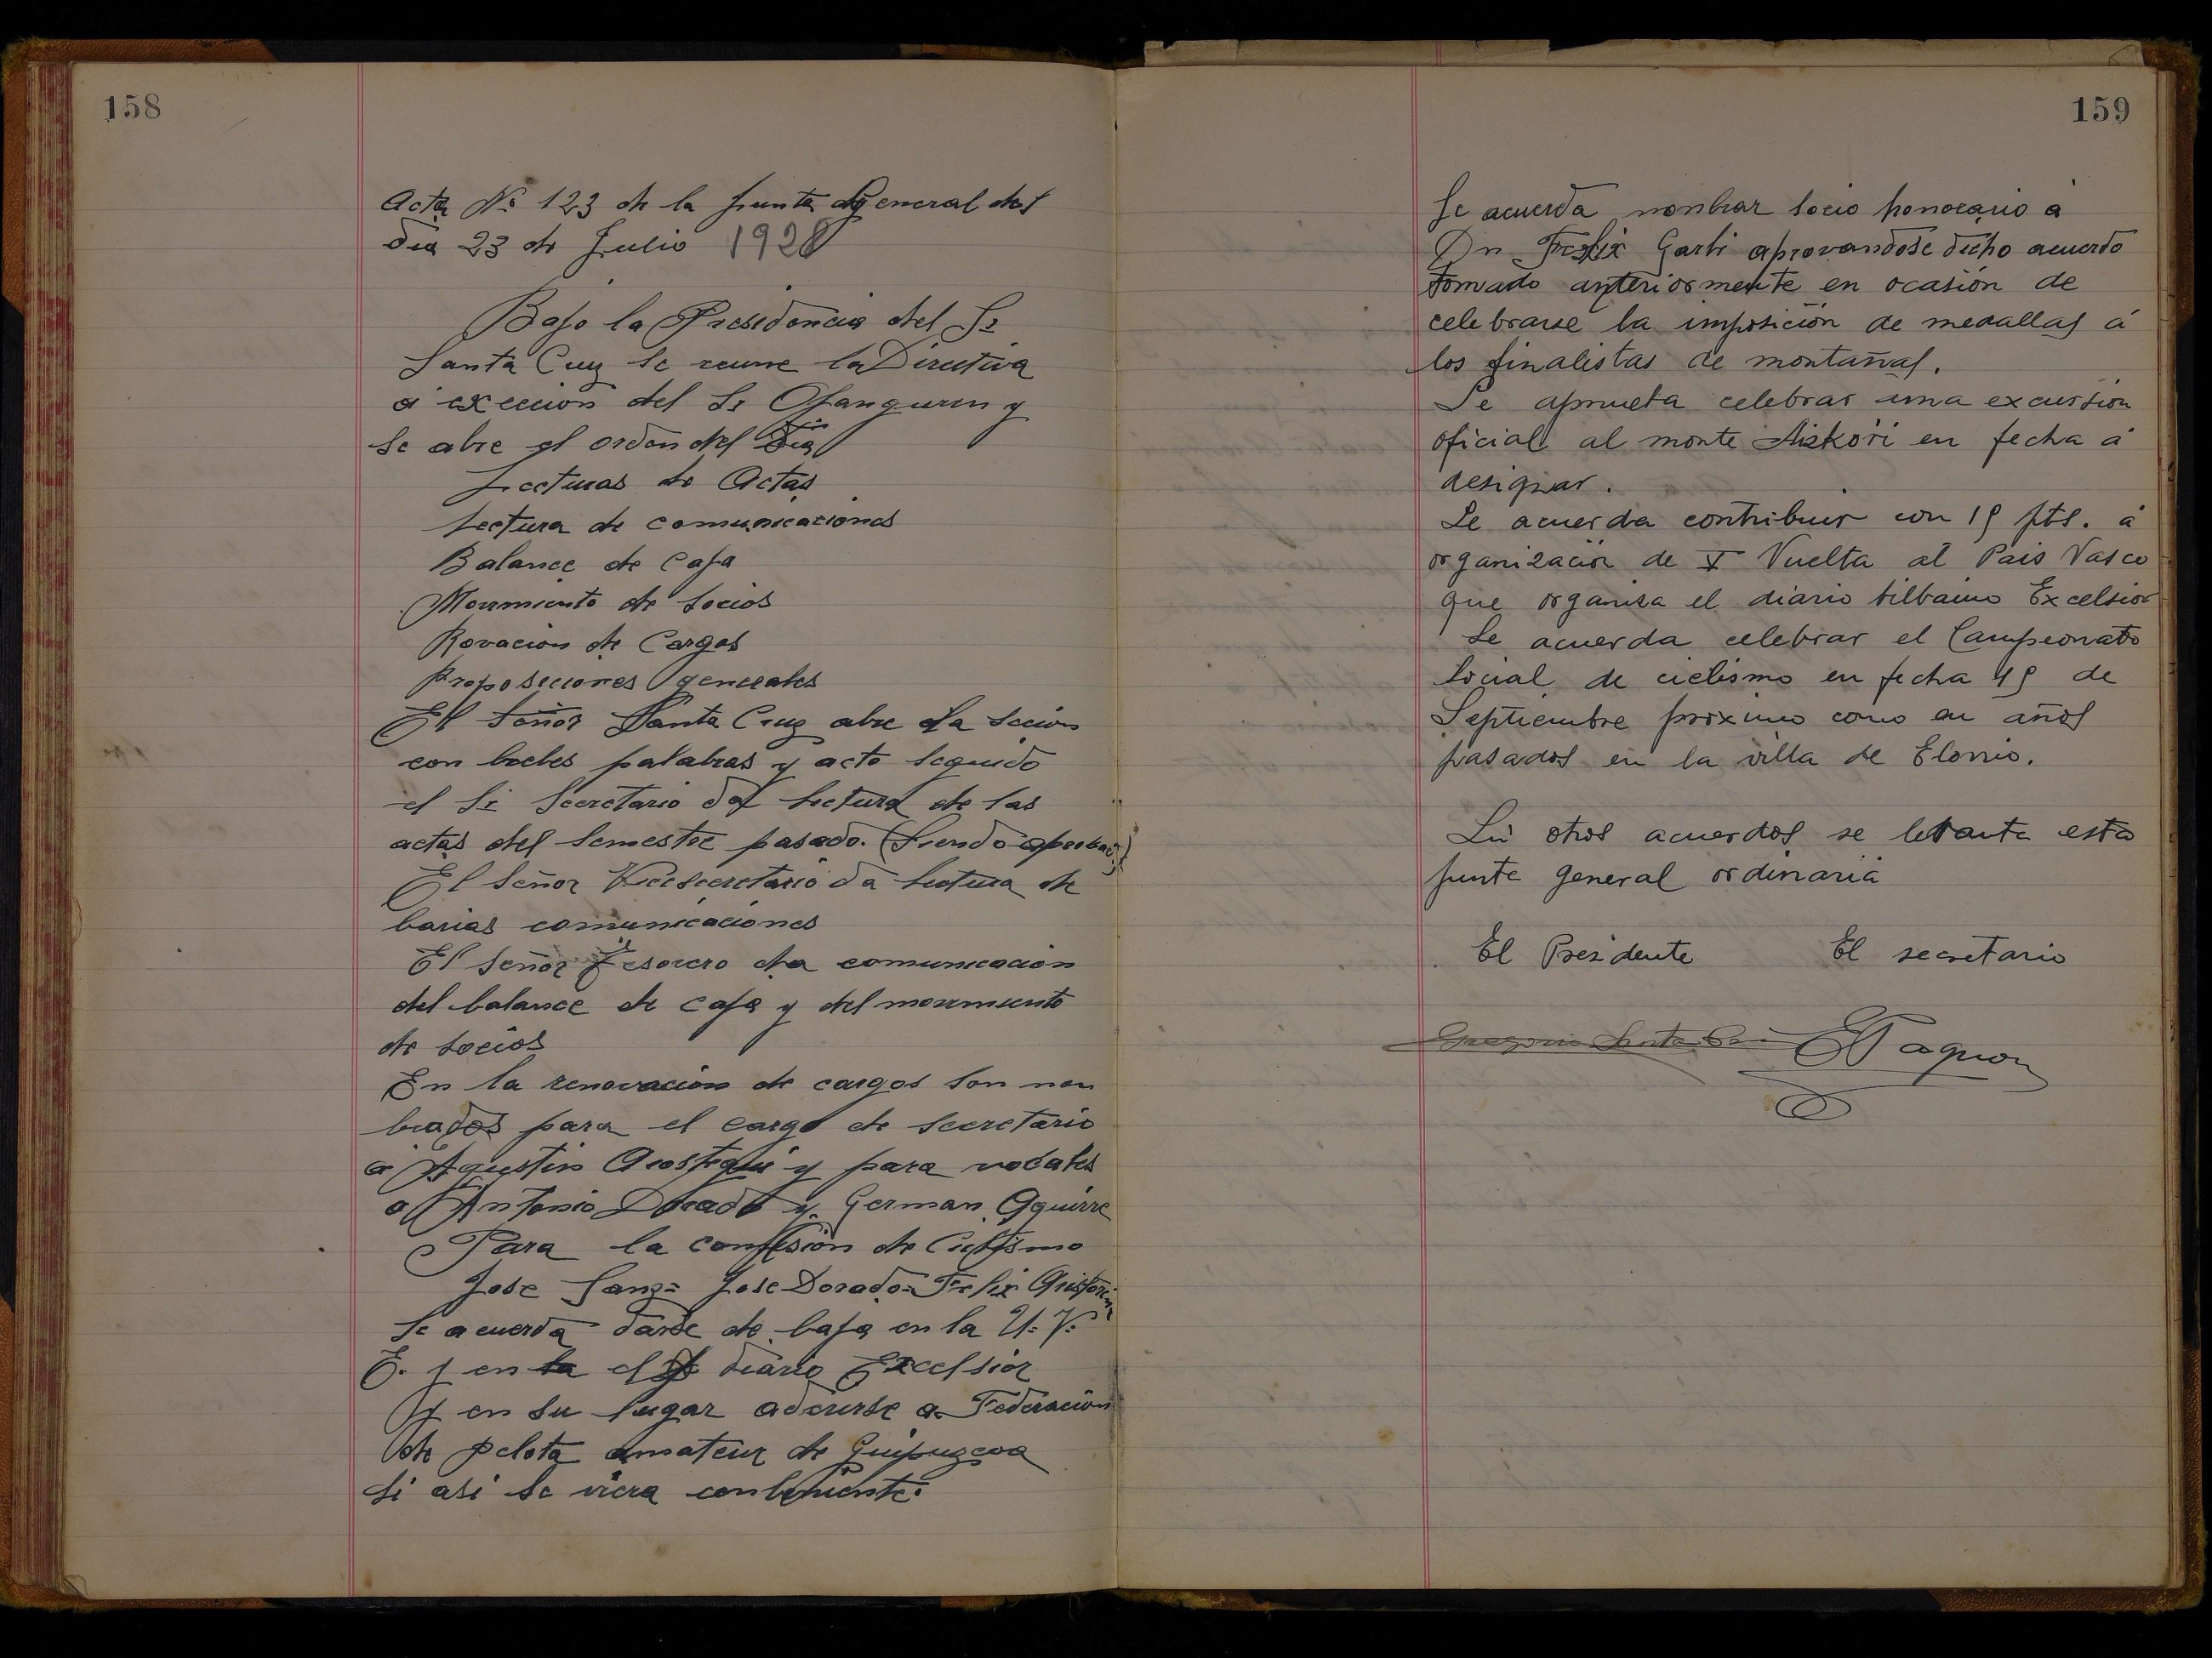 158
Acta Nº 123 de la Junta General del
dia 23 de Julio 1928
Bajo la Presidencia del Sr
Santa Cruz se reune la Directiva
á exección del Sr Ojanguren y
se abre el orden del Dia
Lecturas de Actas
Lectura de comunicaciones
Balance de Caja
Movimiento de Socios
Rovacion de Cargos
Proposiciones generales
El señor Santa Cruz abre la seción
con brebes palabras y acto seguido
el Sr Secretario da lectura de las
actas del semestre pasado. (Siendo aprobad)
El Señor Vicesecretario da lectura de
barias comunicaciones
El señor Tesorero da comunicación
del balance de caja y del movimiento
de socios
En la renovacion de cargos son non
brados para el cargo de secretario
a Agustin Arostegui y para vocales
a Antonio Dorado y German Aguirre
Para la comision de Ciclismo
Jose Sanz = Jose Dorado = Felix
Se acuerda darse de baja en la U. V.
E. y en la el diario Excelsior
y en su lugar aderirse a Federación
de pelota amateur de Guipuzcoa
si asi se viera conbeniente.
159
Se acuerda nonbrar socio honorario á
Dn Felix Garbi aprovandose dicho acuerdo
tomado anteriormente en ocasión de
celebrarse la imposición de medallas á
los finalistas de montañas.
Se aprueba celebrar una excursion
oficial al monte Aizkori en fecha á
designar.
Se acuerda contribuir con 15 pts. á
organización de V Vuelta al Pais Vasco
que organiza el diario bilbaino Excelsior
Se acuerda celebrar el Campeonato
Social de ciclismo en fecha 15 de
Septiembre próximo como en años
pasados en la villa de Elorrio.
Sin otros acuerdos se lebanta esta
junta general ordinaria
El Presidente El secretario
Gregorio Santa Cruz